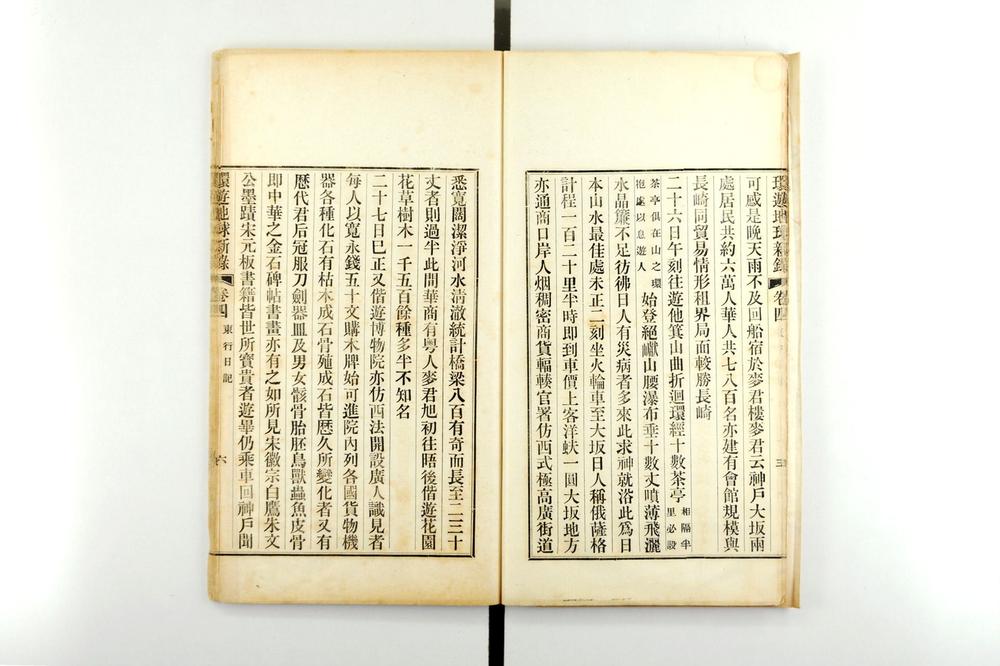 環遊地球新錄
卷四
三
可感是晚天雨不及回船宿於麥君樓麥君云神戶大坂兩
處居民共約六萬人華人共七八百名亦建有會館規模與
長崎同貿易情形租界局面較勝長崎
二十六日午刻往遊他箕山曲折迴環經十數茶亭相隔半里必設
茶亭俱在山之環抱處以息遊人始登絕巘山腰瀑布垂十數丈噴薄飛灑
水晶簾不足彷彿日人有災病者多來此求神就浴此為日
本山水最佳處未正二刻坐火輪車至大坂日人稱俄薩格
計程一百二十里半時即到車價上客洋蚨一圓大坂地方
亦通商口岸人烟稠密商貨輻輳官署仿西式極高廣街道
悉寬闊潔淨河水清澈統計橋梁八百有奇而長至二三十
丈者則過半此間華商有粵人麥君旭初往晤後偕遊花園
花草樹木一千五百餘種多半不知名
二十七日巳正又偕遊博物院亦仿西法開設廣人識見者
每人以寬永錢五十文購木牌始可進院內列各國貨物機
器各種化石有枯木成石骨殖成石皆歷久所變化者又有
歷代君后冠服刀劍器皿及男女骸骨胎胚鳥獸蟲魚皮骨
即中華之金石碑帖書畫亦有之如所見宋徽宗白鷹朱文
公墨蹟宋元板書籍皆世所寶貴者遊畢仍乘車回神戶聞
環遊地球新錄
卷四
東行日記
六